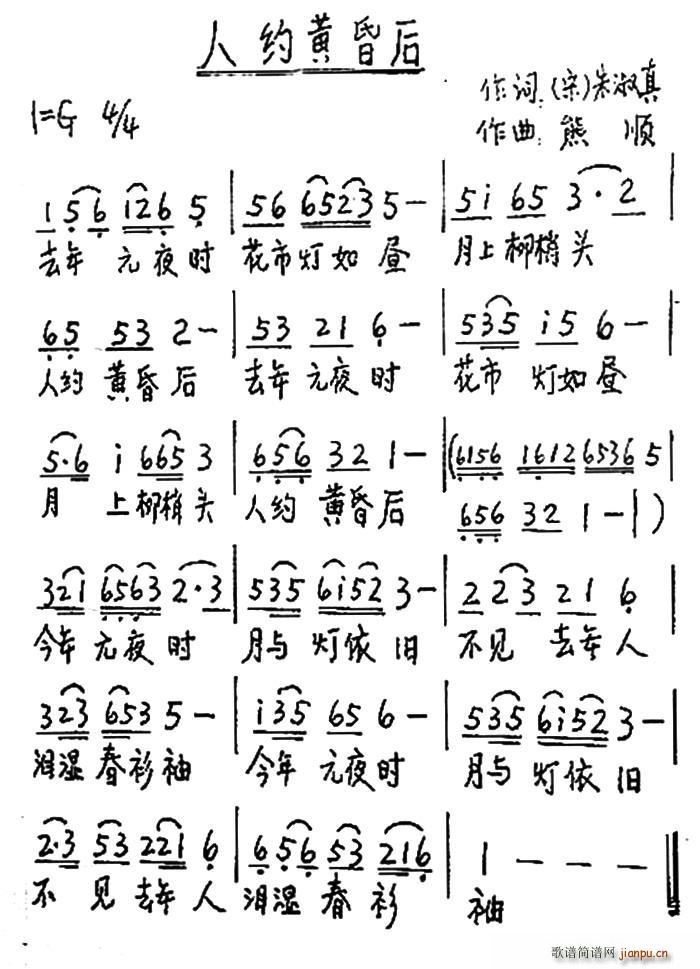 人约黄昏后
作词:(宋)朱淑真
1=G 4/4
作曲:熊 顺
1 56 126 5 | 56 6523 5 – | 5i 65 3·2 |
去年 元夜时 花市灯如昼 月上柳梢头
65 53 2 – | 53 21 6 – | 535 i5 6 – |
人约黄昏后 去年元夜时 花市 灯如昼
5·6 i 665 3 | 656 32 1 – | (6156 1612 6536 5 |
月 上柳梢头 人约黄昏后
656 32 1 – | )
321 6563 2·3 | 535 6i52 3 – | 2 23 21 6 |
今年元夜时 月与灯依旧 不见 去年人
323 653 5 – | i35 65 6 – | 535 6i52 3 – |
泪湿春衫袖 今年元夜时 月与灯依旧
2·3 53 221 6 | 6 56 53 216 | 1 – – – ‖
不 见去年人 泪湿 春 衫 袖
歌谱简谱网 jianpu.cn